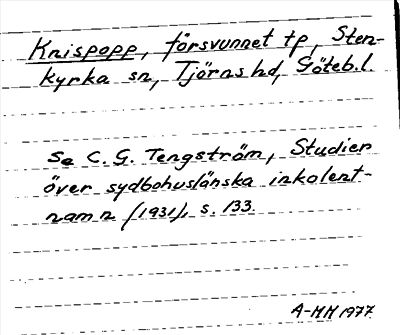 Knispopp, försvunnet tp, Sten-
kyrka sn, Tjörns hd, Göteb.l.
Se C. G. Tengström, Studier
över sydbohuslänska inkolent-
namn (1931), s. 133.
A-MH 1977